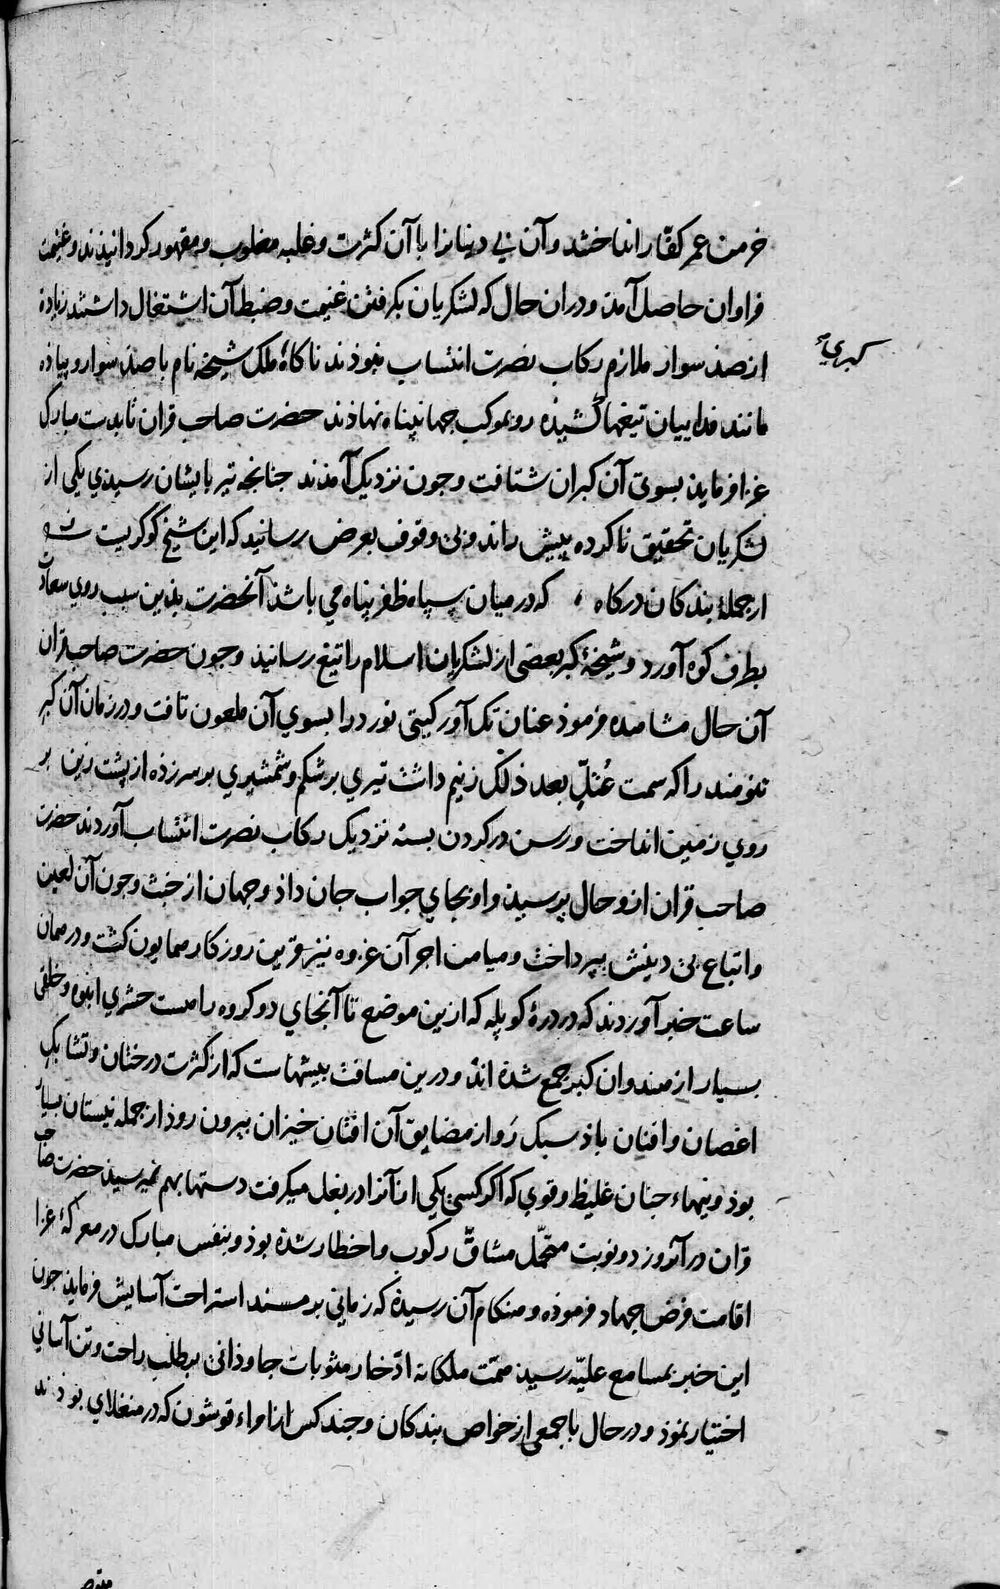 خرمن عمر کفار انداختند و آن بی دینانرا با آن کثرت و غلبه مغلوب و مقهور کردانیدند و غنیمت
فراوان حاصل آمد و دران حال که لشکریان بکرفتن غنیمت و ضبط آن اشتغال داشتند زیادة
از صذ سوار ملازم رکاب نصرت انتساب نبوذند ناکاه ملک شیخه نام با صذ سوار و پیاذه
کبری
مانند فداییان تیغها کشیذه رو بموکب جهانپناه نهاذند حضرت صاحب قران تا بدست مبارک
غزا فرمایذ بسوی آن کبران شتافت و جون نزدیک آمذند جنانجه تیر بایشان رسیدی یکی از
لشکریان تحقیق ناکرده پیش راند و بی وقوف بعرض رسانید که این شیخ کوکریست
از جملهٔ بندکان درکاه ، که در میان سپاه ظفر پناه می باشذ آنحضرت بذین سبب روی سعادت
بطرف کوه آورد و شیخهٔ کبر بعضی از لشکریان اسلام را تیغ رسانیذ و جون حضرت صاحبقران
آن حال مشاهده فرموذ عنان تک آور کیتی نورد را بسوی آن ملعون تافت و در زمان آن کبر
تنومند را که سمت عُتُلٍّ بعد ذلک زنیم داشت تیری بر شکم و شمشیری بر سر زذه از پشت زین بر
روی زمین انداخت و رسن در کردن بسته نزدیک رکاب نصرت انتساب آوردند حضرت
صاحب قران ازو حال پرسیذ و او بجای جواب جان داذ و جهان از خبث وجون آن لعین
و اتباع بی دینش بپرداخت و میامن اجر آن غزوه نیز قرین روزکار همایون کشت و در همان
ساعت خبر آوردند که در درهٔ کوپله که ازین موضع تا آنجای دو کروه راهست حشری انبوه و خلقی
بسیار از هندوان کبر جمع شذه اند و درین مسافت بیشهاست که از کثرت درختان و تشابک
اغصان و افنان باذ سبک رَو از مضایق آن افتان خیزان بیرون روذ از جمله نیستان بسیار
بوذ و نیهاء جنان غلیظ و قوی که اکر کسی یکی از آنرا در بغل میکرفت دستها بهم نمیرسیذ حضرت صاحب
قران در آنروز دو نوبت متحمّل مشاقّ رکوب و اخطار شذه بوذ و بنفس مبارک در معرکهٔ غزا
اقامت فرض جهاد فرموذه و هنکام آن رسیذه که زمانی بر مسند استراحت آسایش فرمایذ جون
این خبر بمسامع علیّه رسیذ همّت ملکانه ادّخار مثوبات جاوذانی بر طلب راحت و تن آسانی
اختیار نموذ و در حال با جمعی از خواص بندکان و جند کس از امراء قوشون که در منغلای بوذند